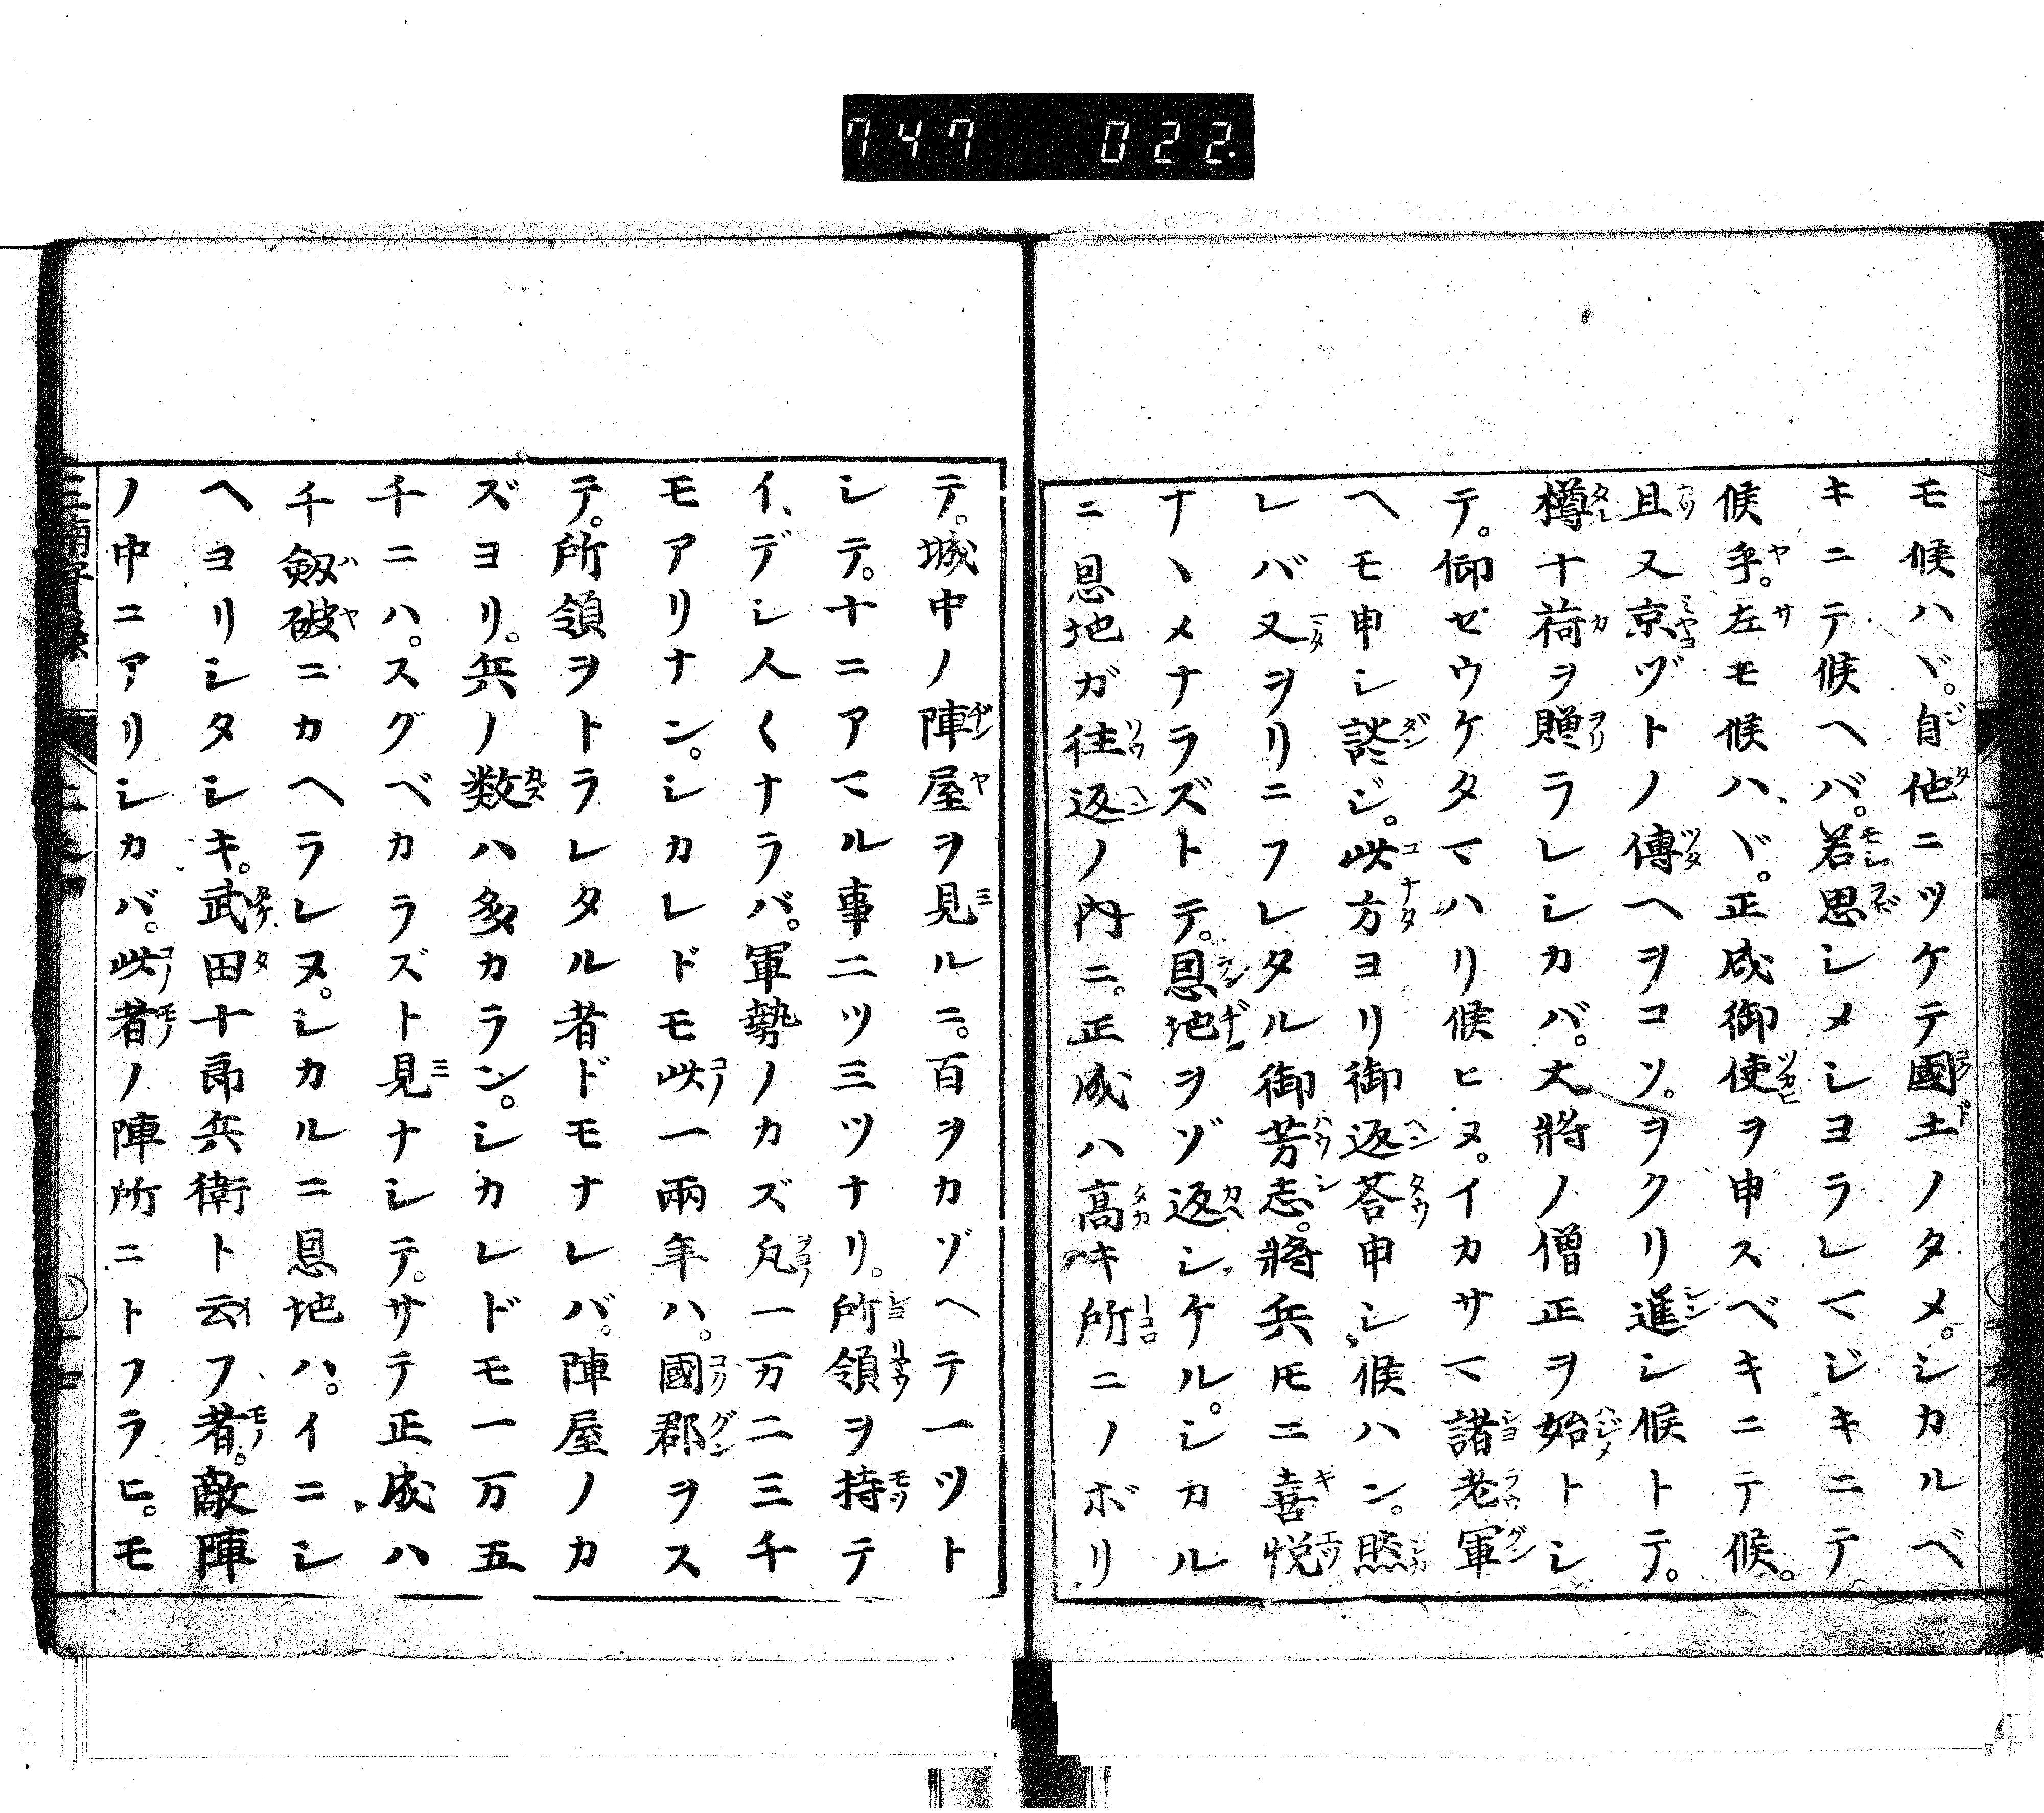 747 022.
モ候ハヾ。自他ニツケテ國土ノタメ。シカルベ
キニテ候ヘバ。若思シメシヨラレマジキニテ
候乎。左モ候ハヾ。正成御使ヲ申スベキニテ候。
且又京ヅトノ傳ヘヲコソ。ヲクリ進シ候トテ。
樽十荷ヲ贈ラレシカバ。大將ノ僧正ヲ始トシ
テ。仰ゼウケタマハリ候ヒヌ。イカサマ諸老軍
ヘモ申シ談ジ。此方ヨリ御返荅申シ候ハン。然
レバ又ヲリニフレタル御芳志。將兵モニ喜悦
ナヽメナラズトテ。恩地ヲゾ返シケル。シカル
ニ恩地ガ往返ノ内ニ。正成ハ高キ所ニノボリ
テ。城中ノ陣屋ヲ見ルニ。百ヲカゾヘテ一ツト
シテ。十ニアマル事二ツ三ツナリ。所領ヲ持テ
イデシ人〱ナラバ。軍勢ノカズ凡一万二三千
モアリナン。シカレドモ此一兩年ハ。國郡ヲス
テ。所領ヲトラレタル者ドモナレバ。陣屋ノカ
ズヨリ。兵ノ数ハ多カラン。シカレドモ一万五
千ニハ。スグベカラズト見ナシテ。サテ正成ハ
千劔破ニカヘラレヌ。シカルニ恩地ハ。イニシ
ヘヨリシタシキ。武田十郎兵衛ト云フ者。敵陣
ノ中ニアリシカバ。此者ノ陣所ニトフラヒ。モ